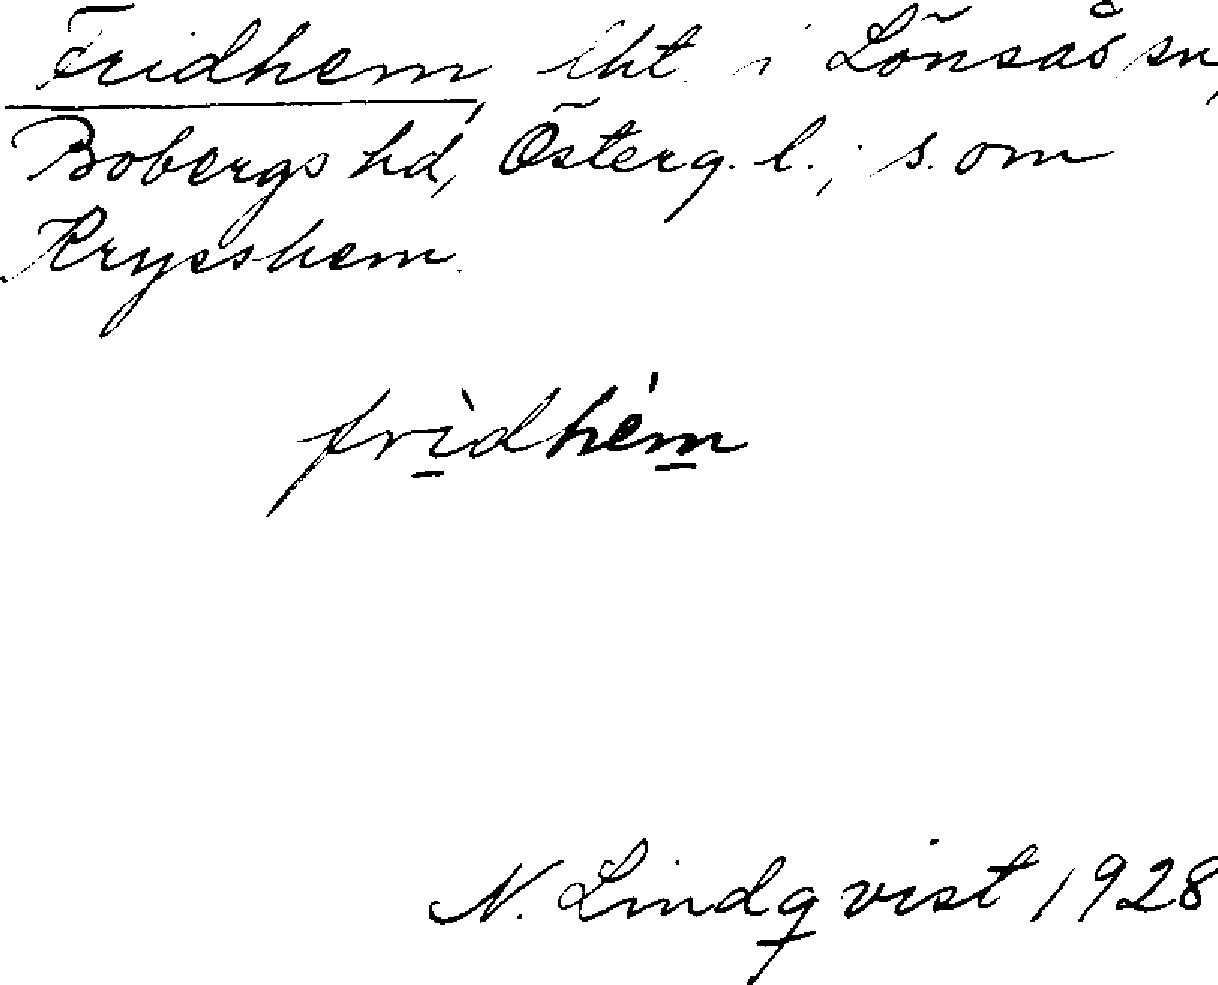 Fridhem, lht. i Lönsås sn,
Bobergs hd, Österg. l.; s. om
Krysshem.
frì̲dhém̲
N. Lindqvist 1928